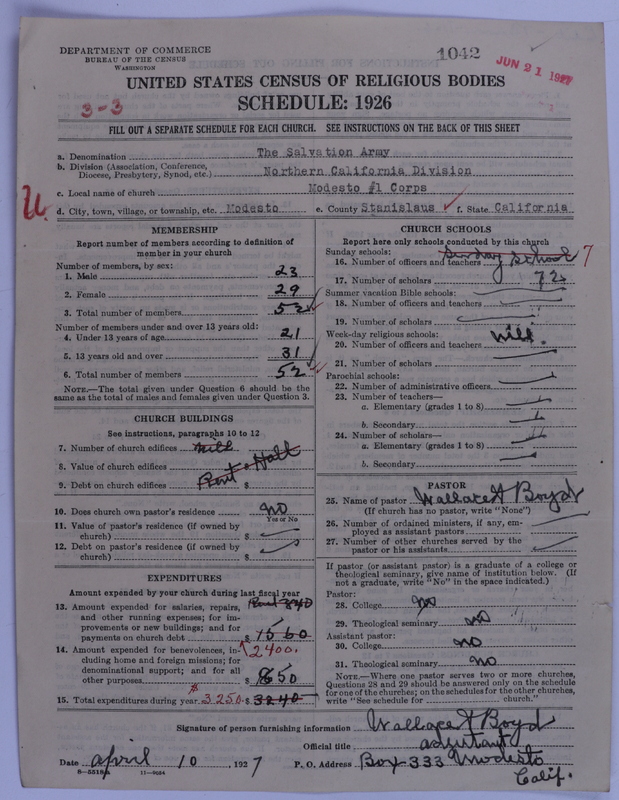 DEPARTMENT OF COMMERCE
BUREAU OF THE CENSUS
WASHINGTON
1042
JUN 21 1927
UNITED STATES CENSUS OF RELIGIOUS BODIES
3-3
SCHEDULE: 1926
FILL OUT A SEPARATE SCHEDULE FOR EACH CHURCH. SEE INSTRUCTIONS ON THE BACK OF THIS SHEET
a. Denomination The Salvation Army
b. Division (Association, Conference, Diocese, Presbytery, Synod, etc.) Northern California Division
c. Local name of church Modesto #1 Corps
U.
d. City, town, village, or township, etc. Modesto e. County Stanislaus f. State California
MEMBERSHIP
Report number of members according to definition of
member in your church
Number of members, by sex:
1. Male 23
2. Female 29
3. Total number of members 52
Number of members under and over 13 years old:
4. Under 13 years of age 21
5. 13 years old and over 31
6. Total number of members 52
NOTE.—The total given under Question 6 should be
same as the total of males and females given under Question 3.
CHURCH BUILDINGS
See instructions, paragraphs 10 to 12
7. Number of church edifices
8. Value of church edifices Rent a Hall
9. Debt on church edifices $
10. Does church own pastor's residence no
Yes or No
11. Value of pastor's residence (if owned by
church) $
12. Debt on pastor's residence (if owned by
church) $
EXPENDITURES
Amount expended by your church during last fiscal year
13. Amount expended for salaries, repairs, Rent 840
and other running expenses; for im-
provements or new buildings; and for
payments on church debt $ 1560
2400.
14. Amount expended for benevolences, in-
cluding home and foreign missions; for
denominational support; and for all
other purposes $ 850
15. Total expenditures during year $3250 $ 3240
CHURCH SCHOOLS
Report here only schools conducted by this church
Sunday schools: Sunday School
16. Number of officers and teachers 7
17. Number of scholars 72
Summer vacation Bible schools:
18. Number of officers and teachers
19. Number of scholars
Week-day religious schools:
20. Number of officers and teachers
21. Number of scholars
Parochial schools:
22. Number of administrative officers
23. Number of teachers—
a. Elementary (grades 1 to 8)
b. Secondary
24. Number of scholars—
a. Elementary (grades 1 to 8)
b. Secondary
PASTOR
25. Name of pastor Wallace H Boyd
(If church has no pastor, write "None")
26. Number of ordained ministers, if any, em-
ployed as assistant pastors
27. Number of other churches served by the
pastor or his assistants
If pastor (or assistant pastor) is a graduate of a college or
theological seminary, give name of institution below. (If
not a graduate, write "No" in the space indicated.)
Pastor:
28. College no
29. Theological seminary no
Assistant pastor:
30. College no
31. Theological seminary no
NOTE.—Where one pastor serves two or more churches,
Questions 28 and 29 should be answered only on the schedule
for one of the churches; on the schedules for the other churches,
write "See schedule for church."
Signature of person furnishing information Wallace H Boyd
Official title adjutant
Date april 10, 1927 P. O. Address Box 333 Modesto
Calif.
8-5518a 11-9084